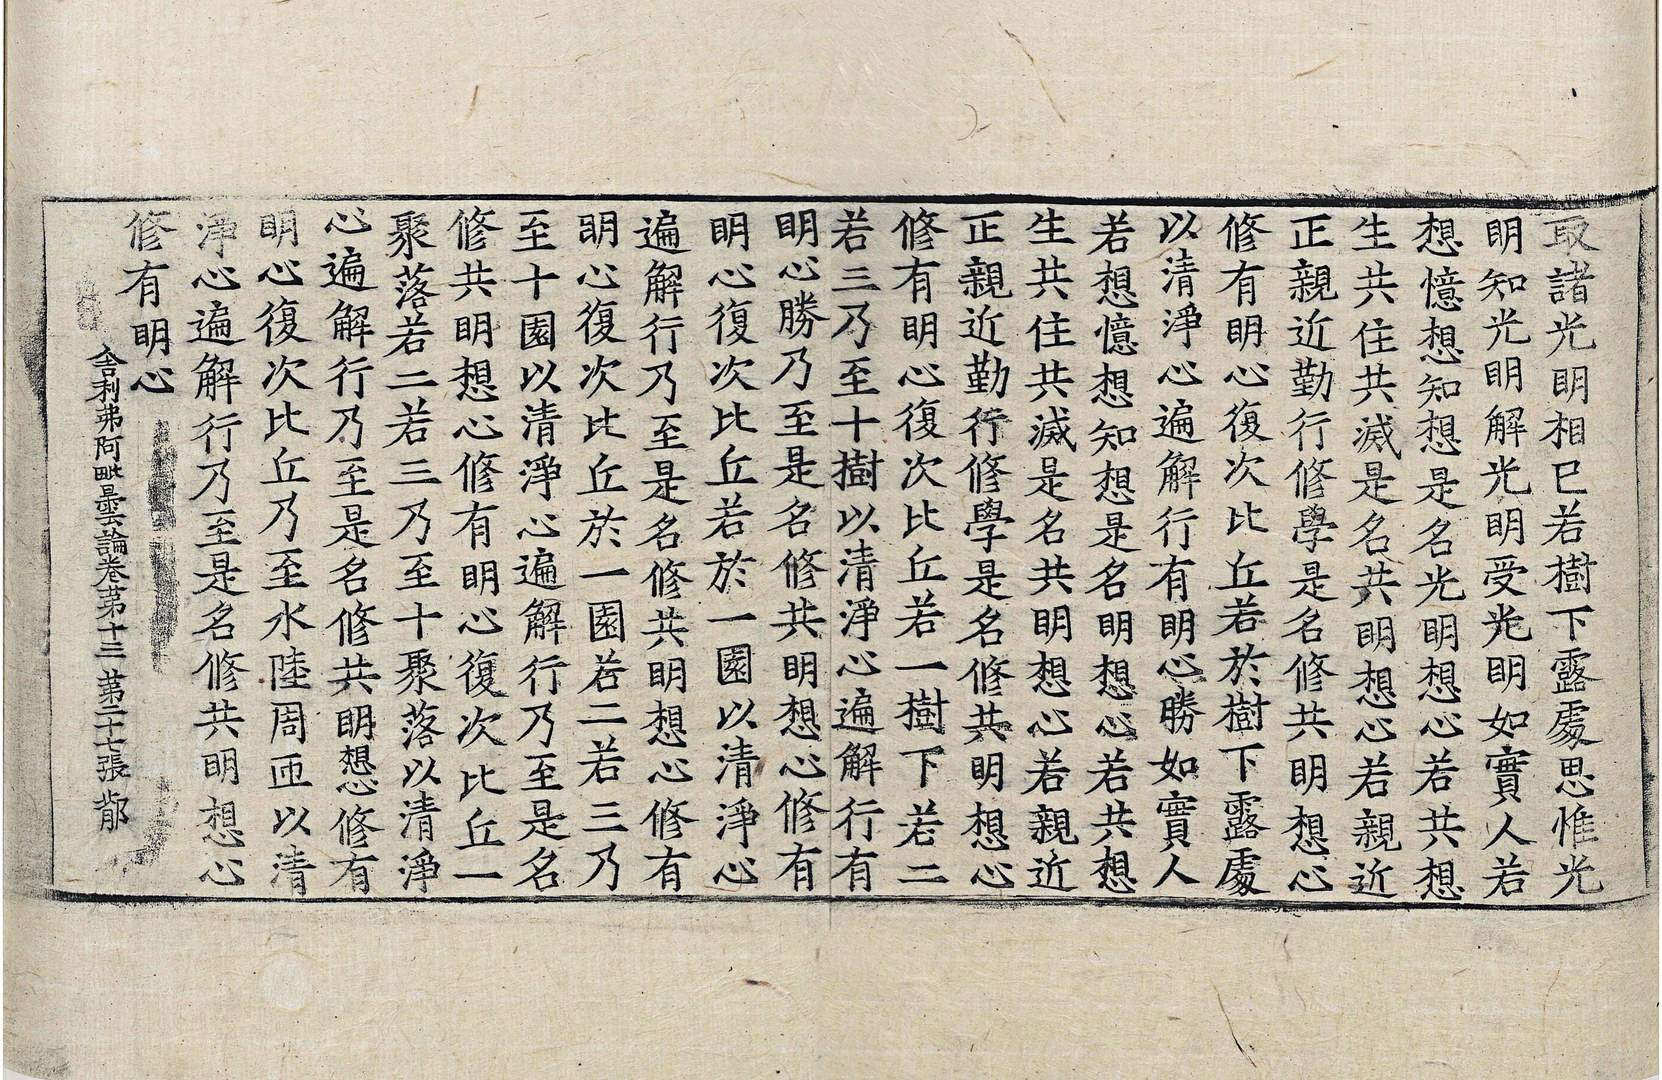 取諸光明相已若樹下露處思惟光
明知光明解光明受光明如實人若
想憶想知想是名光明想心若共想
生共住共滅是名共明想心若親近
正親近勤行修學是名修共明想心
修有明心復次比丘若於樹下露處
以清淨心遍解行有明心勝如實人
若想憶想知想是名明想心若共想
生共住共滅是名共明想心若親近
正親近勤行修學是名修共明想心
修有明心復次比丘若一樹下若二
若三乃至十樹以清淨心遍解行有
明心勝乃至是名修共明想心修有
明心復次比丘若於一園以清淨心
遍解行乃至是名修共明想心修有
明心復次比丘於一園若二若三乃
至十園以清淨心遍解行乃至是名
修共明想心修有明心復次比丘一
聚落若二若三乃至十聚落以清淨
心遍解行乃至是名修共明想心修有
明心復次比丘乃至水陸周匝以清
淨心遍解行乃至是名修共明想心
修有明心
舍利弗阿毗曇論卷第十三 第二十七張